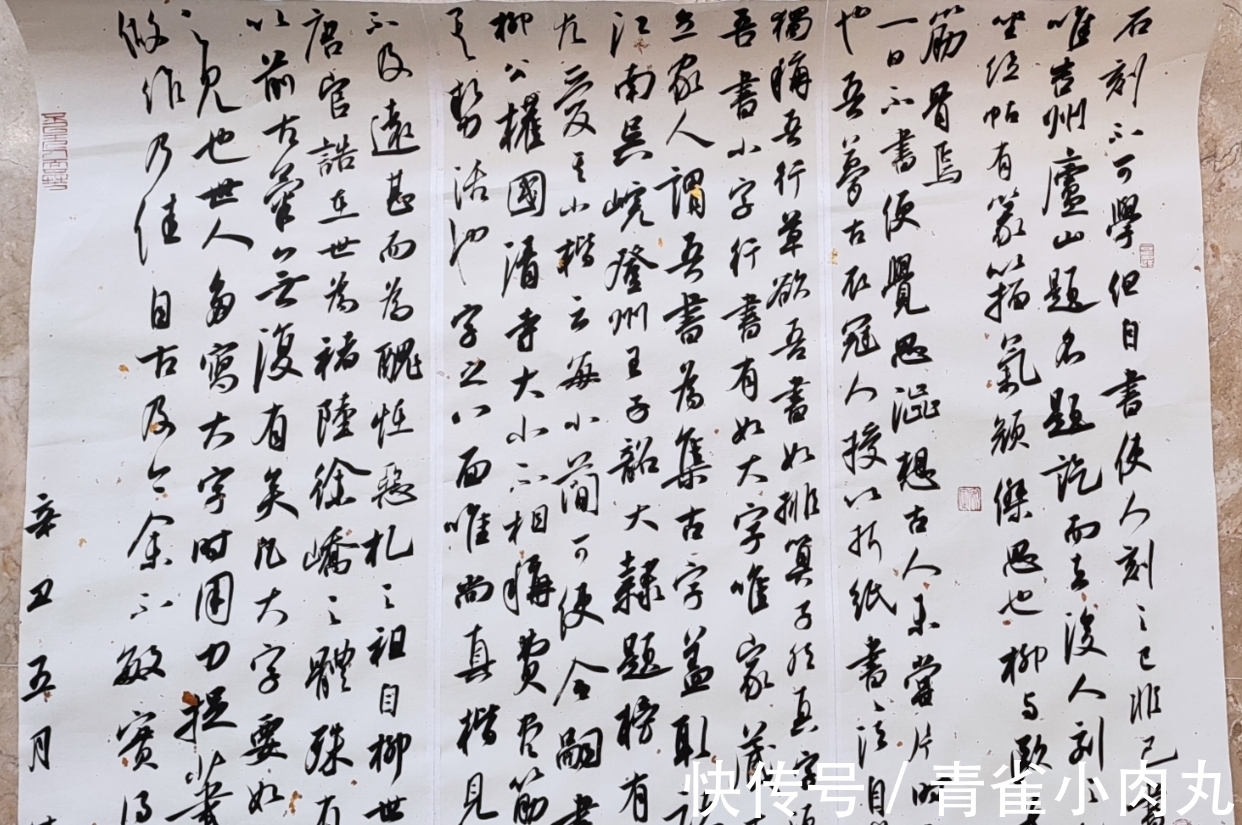 石刻不可學但自書使人刻之已非己書
唯吉州廬山題名題訖而去後人刻之
坐位帖有篆籀氣顏傑思也柳與歐
筋骨焉
一日不書便覺思澁想古人未嘗片時
也吾夢古衣冠人授以折紙書書法自
獨稱吾行草欲吾書如排算子然真字須
吾書小字行書有如大字唯家藏
立家人謂吾書為集古字蓋取諸
江南吳皖登州王子韶大隸題榜有
尤愛其小楷云每小簡可使令嗣書
柳公權國清寺大小不相稱費盡筋
其勢活也字之八面唯尚真楷見
不及遠甚而為醜怪惡札之祖自柳世
唐官誥在世為褚陸徐嶠之體殊有
以前古氣無復有矣凡大字要如
之見也世人多寫大字時用力捉筆
做作乃佳自古及今余不敏實得
辛丑五月
快传号/青雀小肉丸